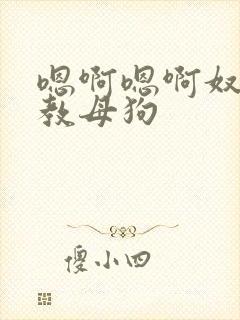 嗯啊嗯啊奴
教母狗
傻小四